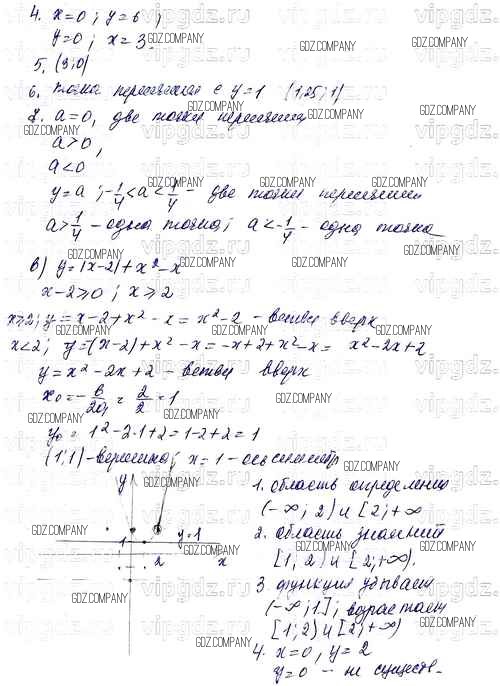 4. x=0; y=6;
y=0; x=3.
5. (3;0)
6. Точка пересечения с y=1 (1,25; 1)
7. a=0, две точки пересечения
a>0,
a<0
y=a; -1/4<a<1/4 - две точки пересечения
a>1/4 - одна точка; a<-1/4 - одна точка
в) y=|x-2|+x²-x
x-2≥0; x≥2
x≥2; y=x-2+x²-x=x²-2 - ветви вверх
x<2; y=(x-2)+x²-x=-x+2+x²-x= x²-2x+2
y=x²-2x+2 - ветви вверх
x₀=-в/2a=2/2=1
y₀=1²-2·1+2=1-2+2=1
(1;1)-вершина; x=1-ось симметр
y
1
2
y=1
x
1. область определения
(-∞; 2) и [2; +∞
2. область значений
[1; 2) и [2; +∞).
3. функция убывает
(-∞; 1]; возрастает
[1; 2) и [2; +∞)
4. x=0, y=2
y=0 - не существ-
GDZ.COMPANY
vipgdz.ru